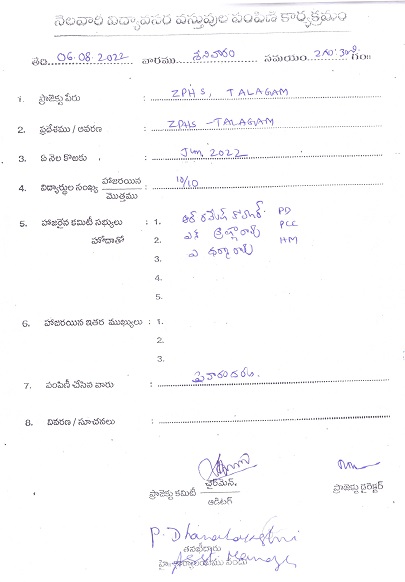 నెలవారీ విద్యావసర వస్తువుల పంపిణీ కార్యక్రమం
తేది 06.08.2022 వారము శనివారం సమయం 2గం||30ని|| గం॥
1. ప్రాజెక్టు పేరు : ZPHS, TALAGAM
2. ప్రదేశము / ఆవరణ : ZPHS - TALAGAM
3. ఏ నెల కొఱకు : Jun, 2022
4. విద్యార్థుల సంఖ్య హాజరయిన / మొత్తము : 10/10
5. హాజరైన కమిటీ సభ్యులు : 1. ఆర్ రమేష్ కుమార్ PD
హోదాతో 2. ఎక్ కృష్ణారావు PCC
3. ఎ ధర్మారావు HM
4.
5.
6. హాజరయిన ఇతర ముఖ్యులు : 1.
2.
3.
7. పంపిణీ చేసిన వారు : పైవారందరూ
8. వివరణ / సూచనలు :
ప్రాజెక్టు కమిటీ ఛైర్మెన్, / ఆడిటర్
ప్రాజెక్టు డైరెక్టర్
P. Dhanalakshmi